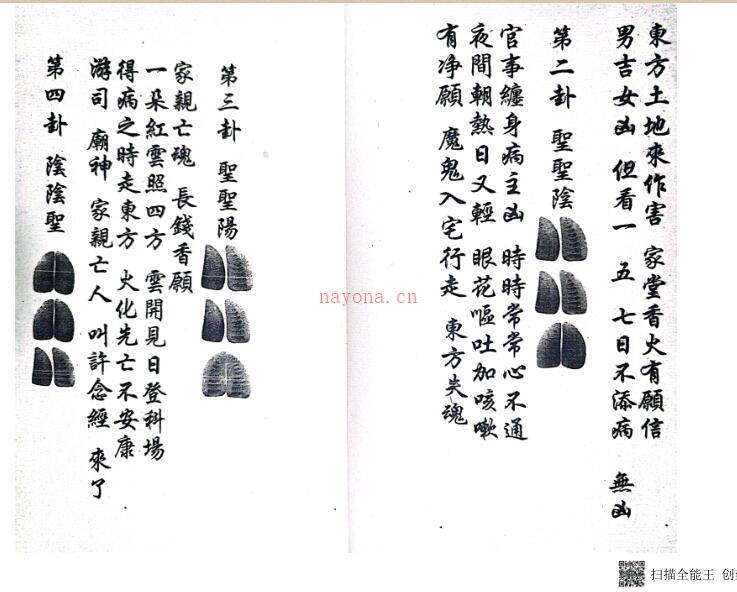 東方土地來作害 家堂香火有願信
男吉女凶 但看一 五 七日不添病 無凶
第二卦 聖聖陰
官事纏身病主凶 時時常常心不通
夜間朝熱日又輕 眼花嘔吐加咳嗽
有净願 魔鬼入宅行走 東方失魂
第三卦 聖聖陽
家親亡魂 長錢香願
一朵紅雲照四方 雲開見日登科場
得病之時走東方 火化先亡不安康
游司 廟神 家親亡人 叫許念經 來了
第四卦 陰陰聖
nayona.cn
扫描全能王 创